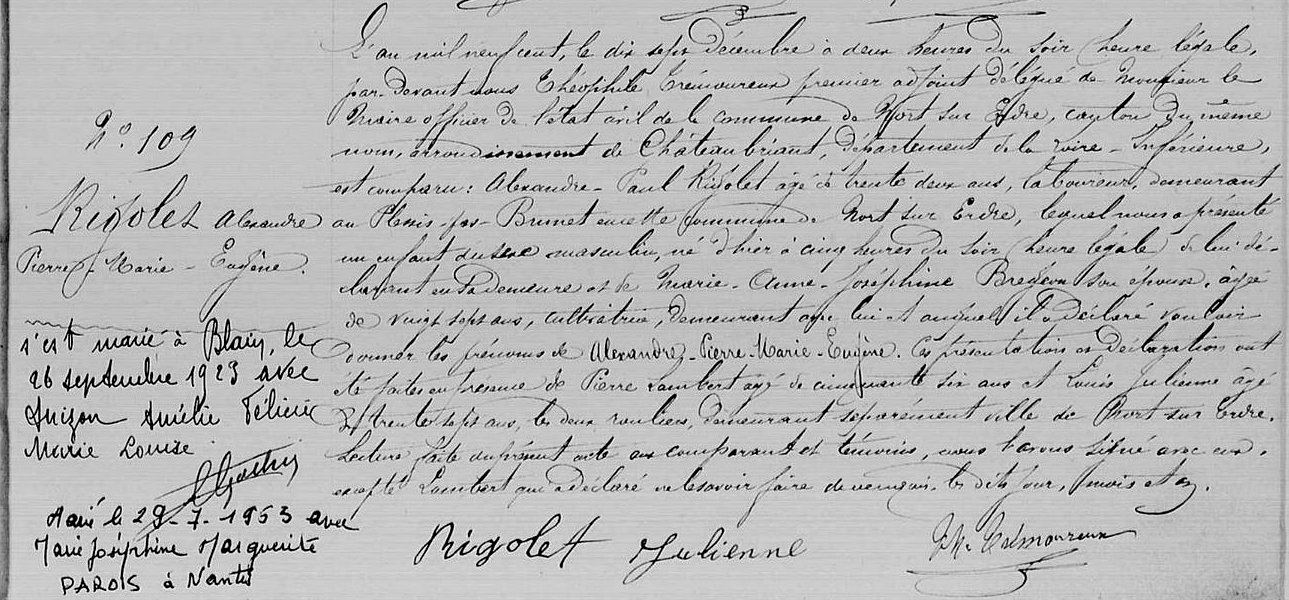 N.º 109
Rigolet Alexandre
Pierre-Marie-Eugène.
s'est marié à Blain, le
26 septembre 1923 avec
Amélie Félicie
Marie Louise
Marié le 29-7-1953 avec
Marie Joséphine Marguerite
PAROIS à Nantes
L'an mil neuf cent, le dix sept décembre à deux heures du soir (heure légale,
par-devant nous Théophile Trémoureux premier adjoint délégué de Monsieur le
Maire officier de l'état civil de la commune de Nort sur Erdre, canton du même
nom, arrondissement de Châteaubriant, département de la Loire-Inférieure,
est comparu: Alexandre-Paul Rigolet âgé de trente deux ans, laboureur, demeurant
au Plessis-pas-Brunet en cette commune de Nort sur Erdre, lequel nous a présenté
un enfant du sexe masculin, né d'hier à cinq heures du soir (heure légale) de lui dé-
clarant en sa demeure et de Marie-Anne-Joséphine Bregeon son épouse, âgée
de vingt sept ans, cultivatrice, demeurant avec lui et auquel il a déclaré vouloir
donner les prénoms de Alexandre-Pierre-Marie-Eugène. Ces présentation et déclaration ont
été faites en présence de Pierre Lambert âgé de cinquante six ans et Louis Julienne âgé
de trente sept ans, les deux rouliers, demeurant séparément ville de Nort sur Erdre.
Lecture faite du présent acte aux comparant et témoins, nous l'avons signé avec eux,
excepté Lambert qui a déclaré ne le savoir faire de ce requis, les dits jour, mois et an.
Rigolet Julienne